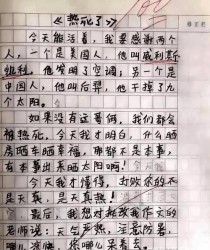 《热死了》
今天能活着，我要感谢两个
人，一个是美国人，他叫威利斯
开利，他发明了空调；另一个是
中国人，他叫后羿，他干掉了九
个太阳。
如果没有这哥俩，我们都会
被热死。今天我才明白，什么晒
房晒车晒幸福，那都不是本事，
有本事出来晒太阳啊！
今天我才懂得，打败你的不
是天真，是天真热！
最后，我想对批改我作文的
老师说：天气炎热，注意防暑，
哪儿凉快，你哪儿呆着去。